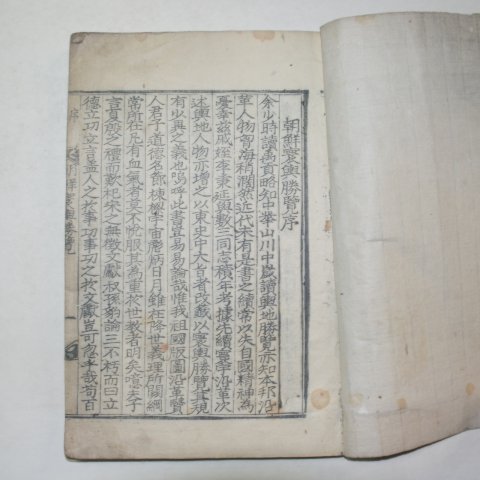 朝鮮寰輿勝覽序
余少時讀禹貢略知中華山川中歲讀輿地勝覽亦知本邦沿
革人物智海稍濶然近代未有是書之續常以失自國精神爲
憂幸玆戚姪李秉延與數三同志積年考據先續寰宇沿革次
述輿地人物亦增之以東史中大旨者改號以寰輿勝覽其規
有少異之義也嗚呼此書豈易易論哉惟我祖國版圖沿革賢
人君子道德名節棟樑宇宙麗炳日月雖在降世義理所關綱
常所在凡有血氣者莫不悅服其爲重於世教者明矣噫夫子
言夏殷之禮而歎杞宋之無徵文獻叔孫豹論三不朽而曰立
德立功立言盖人之於事功事功之於文獻豈可忽乎哉苟百
序
朝鮮寰輿勝覽
一